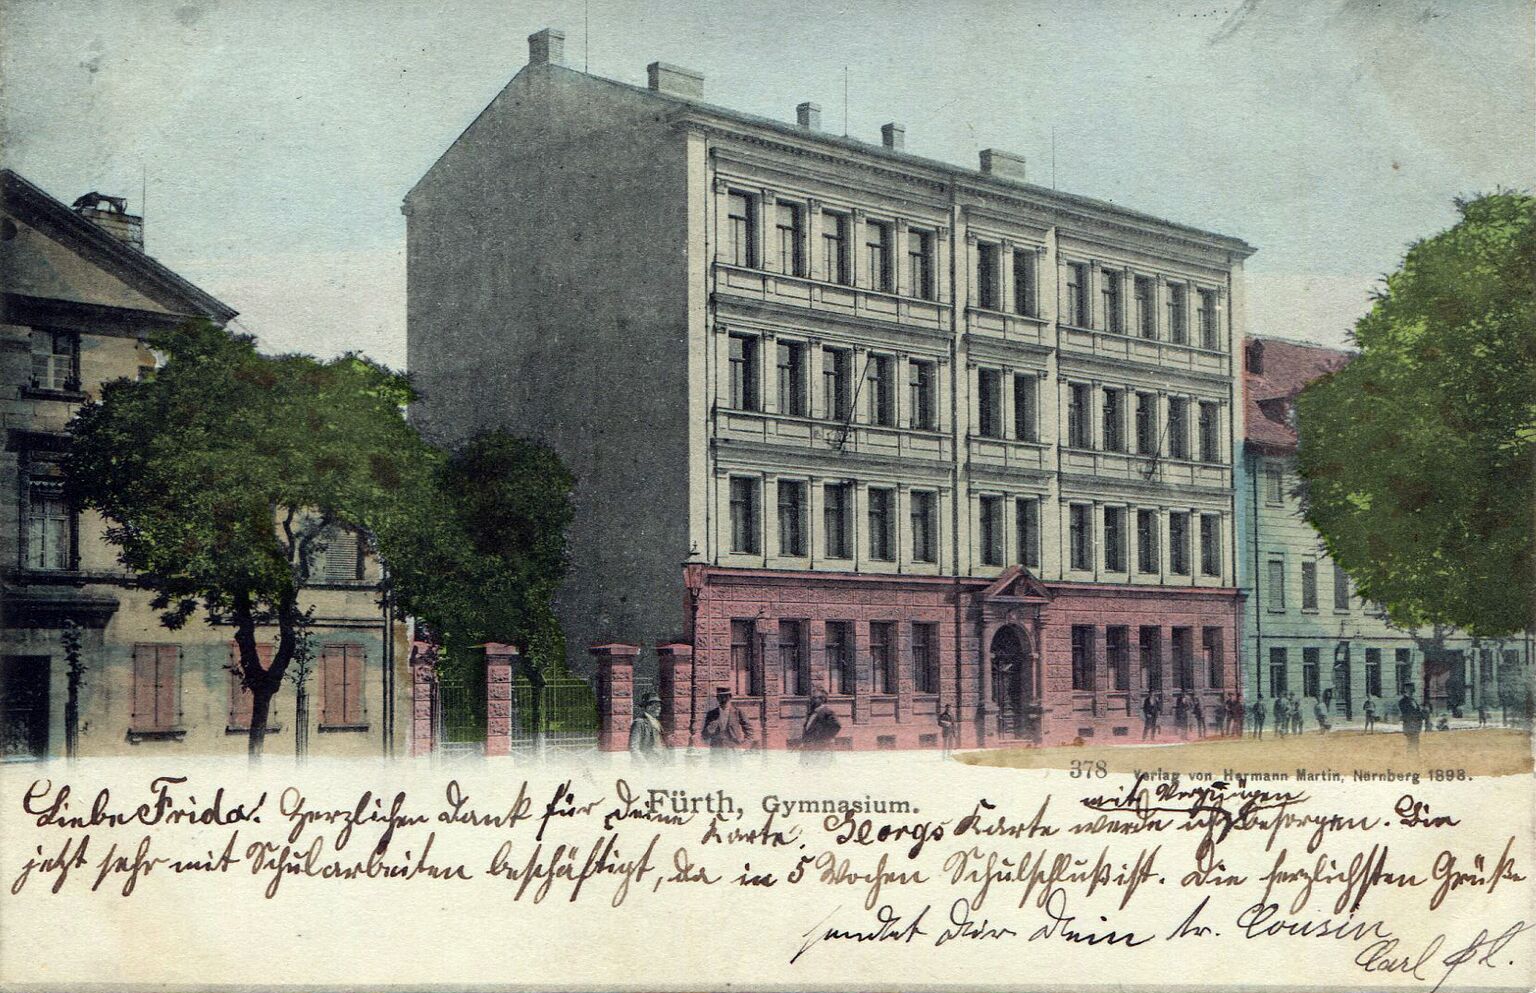 378 Verlag von Hermann Martin, Nürnberg 1898.
Fürth, Gymnasium.
mit Vergnügen
Liebe Frida! Herzlichen Dank für Deine Karte. Georgs Karte werde ich besorgen. Bin
jetzt sehr mit Schularbeiten beschäftigt, da in 5 Wochen Schulschluß ist. Die herzlichsten Grüße
sendet Dir Dein tr. Cousin
Carl